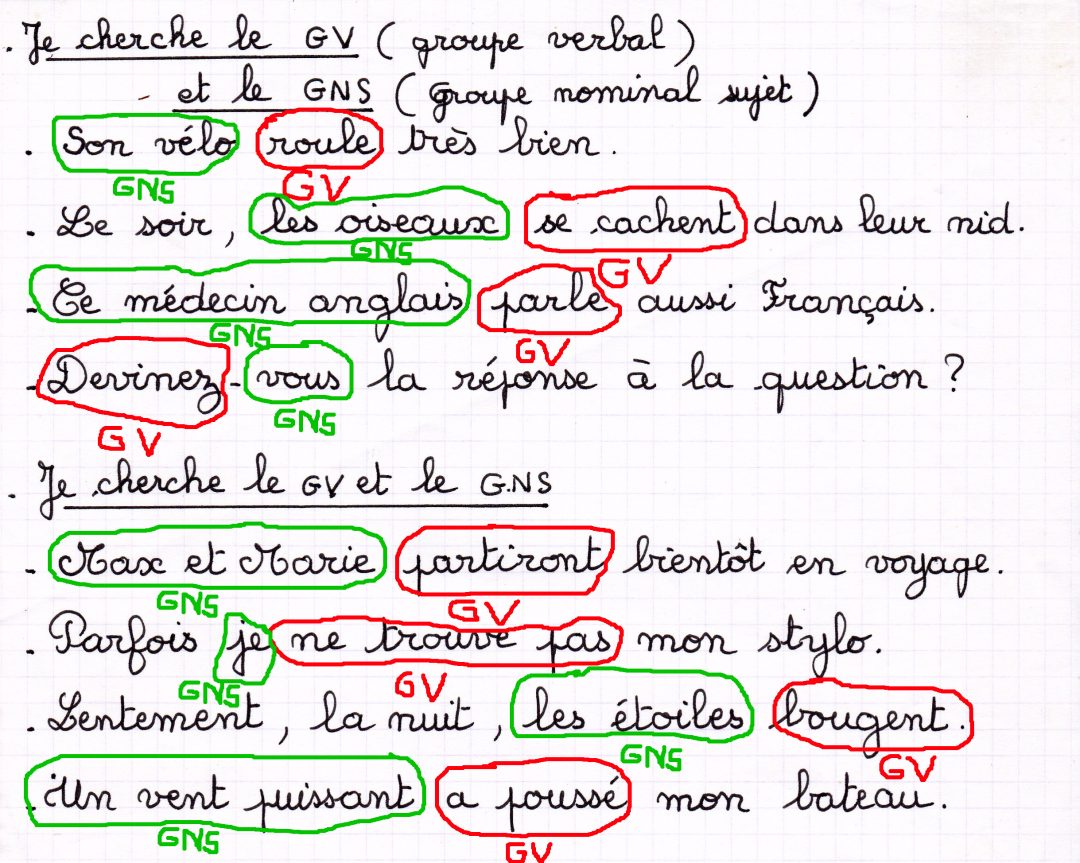 . Je cherche le GV (groupe verbal)
- et le GNS (groupe nominal sujet)
. Son vélo roule très bien.
GNS GV
. Le soir, les oiseaux se cachent dans leur nid.
GNS GV
- Ce médecin anglais parle aussi Français.
GNS GV
- Devinez-vous la réponse à la question ?
GV GNS
. Je cherche le GV et le G.NS
- Max et Marie partiront bientôt en voyage.
GNS GV
. Parfois je ne trouve pas mon stylo.
GNS GV
. Lentement, la nuit, les étoiles bougent.
GNS GV
. Un vent puissant a poussé mon bateau.
GNS GV